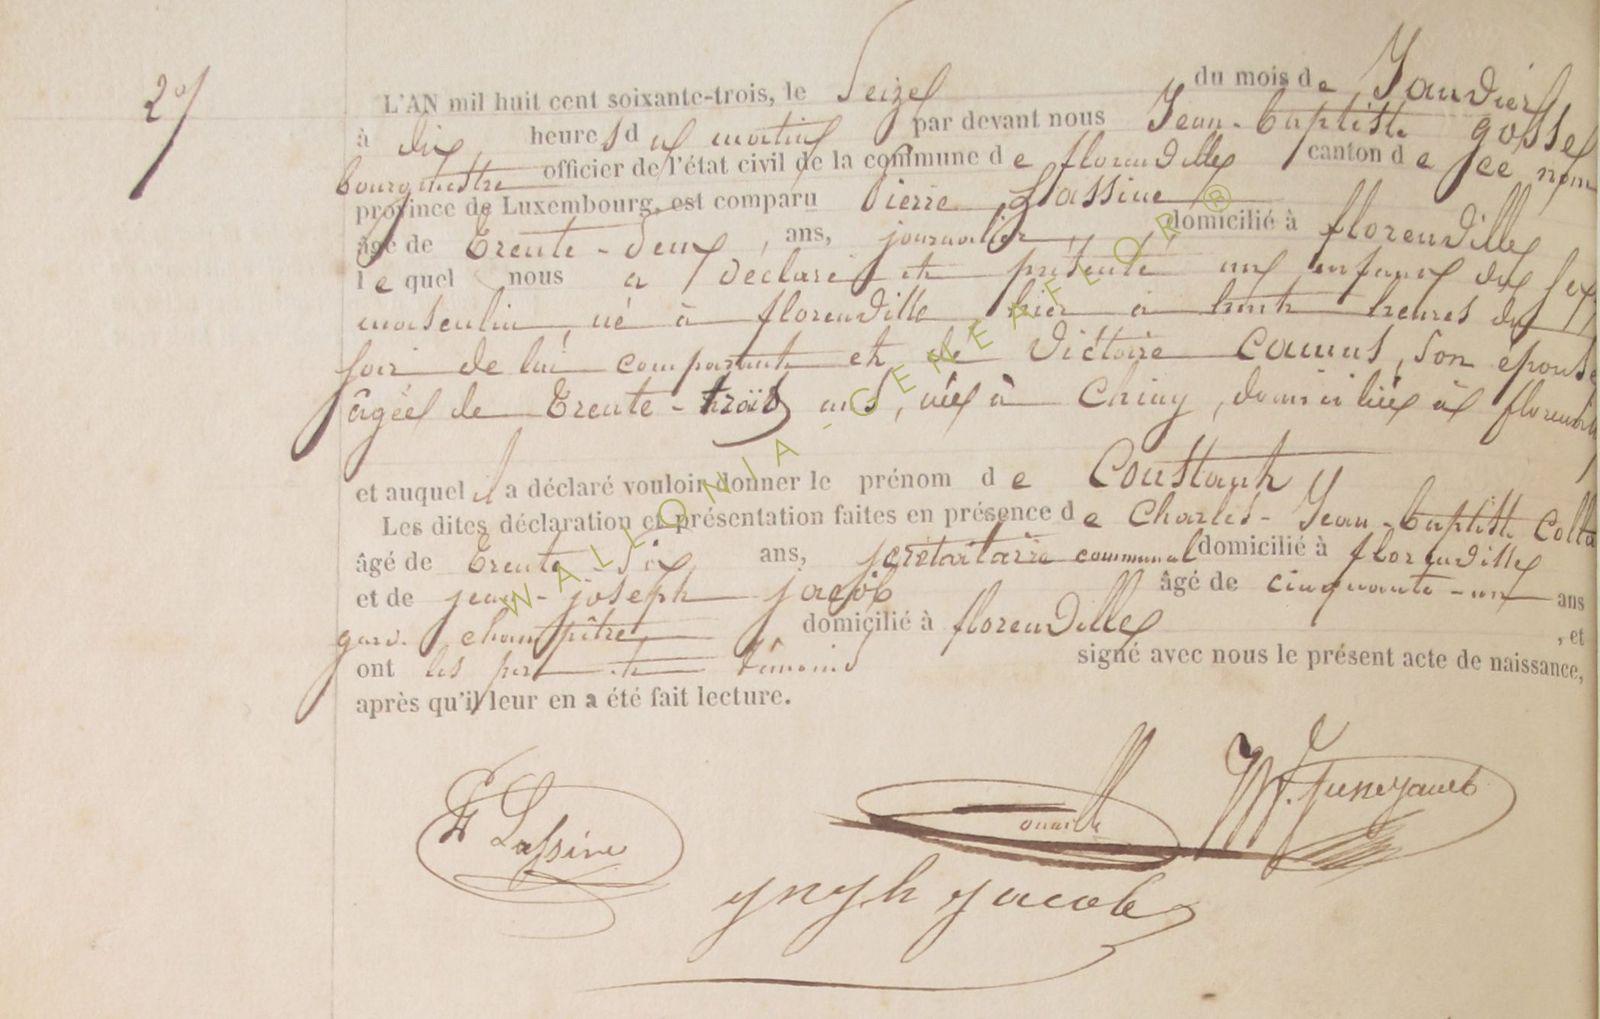 2
L'AN mil huit cent soixante-trois, le Seize du mois de Janvier
à dix heures du matin par devant nous Jean-baptiste gosse
bourgmestre officier de l'état civil de la commune de florenville canton de ce nom
province de Luxembourg, est comparu Pierre Lassine
âgé de Trente-Deux ans, journalier, domicilié à florenville
lequel nous a déclaré et présenté un enfant du sexe
masculin, né à florenville hier à huit heures du
soir de lui comparant et de Victoire Camus, son épouse
âgée de Trente-trois ans, née à Chiny, domiciliée à florenville
et auquel il a déclaré vouloir donner le prénom de Constant
Les dites déclaration et présentation faites en présence de Charles-Jean-baptiste
âgé de Trente-Six ans, secrétaire communal domicilié à florenville
et de jean-joseph jacob âgé de cinquante-un ans
gard. champêtre domicilié à florenville, et
ont les témoins signé avec nous le présent acte de naissance,
après qu'il leur en a été fait lecture.
Lassine
Jacob
WALLONIA-GENEAFLOR®